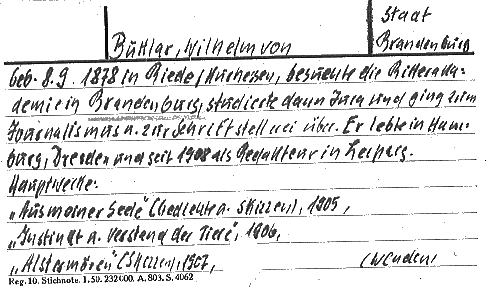 Staat
Buttlar, Wilhelm von
Brandenburg
Geb. 8.9. 1878 in Riede/Kurhessen, besuchte die Ritteraka-
demie in Brandenburg, studierte dann Jura und ging zum
Journalismus u. zur Schriftstellerei über. Er lebte in Ham-
burg, Dresden und seit 1908 als Redakteur in Leipzig.
Hauptwerke:
„Aus meiner Seele" (Gedichte u. Skizzen), 1905,
„Instinkt u. Verstand der Tiere", 1906,
„Alstermöven" (Skizzen), 1907,
(wenden)
Reg. 10. Stichnote. 1. 50. 232000. A. 803. S. 4062